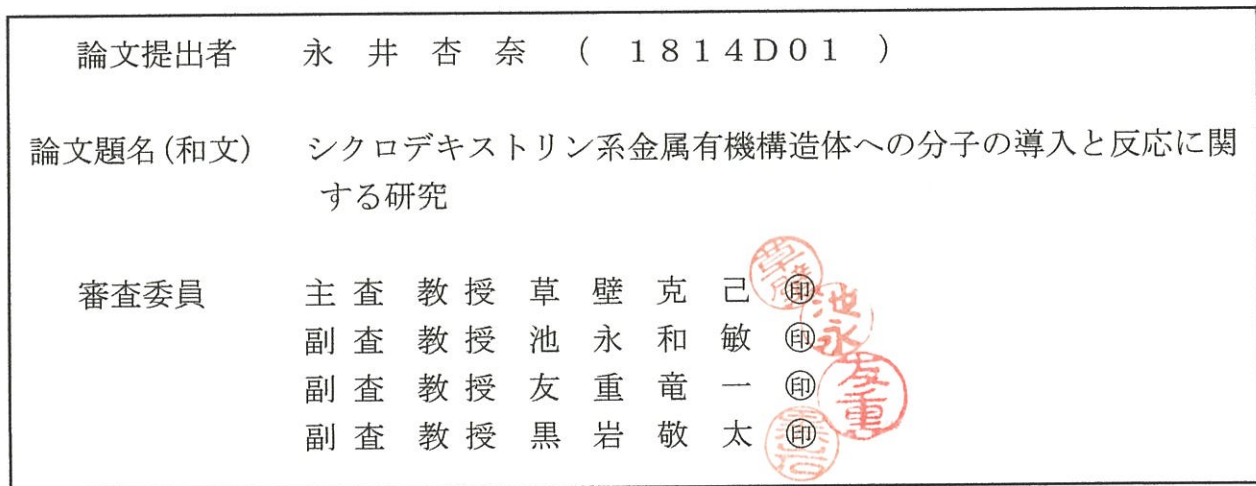 論文提出者 永井杏奈 (1814D01)
論文題名(和文) シクロデキストリン系金属有機構造体への分子の導入と反応に関
する研究
審査委員 主査 教授 草壁克己 ㊞ 草壁
副査 教授 池永和敏 ㊞ 池永
副査 教授 友重竜一 ㊞ 友重
副査 教授 黒岩敬太 ㊞ 黒岩